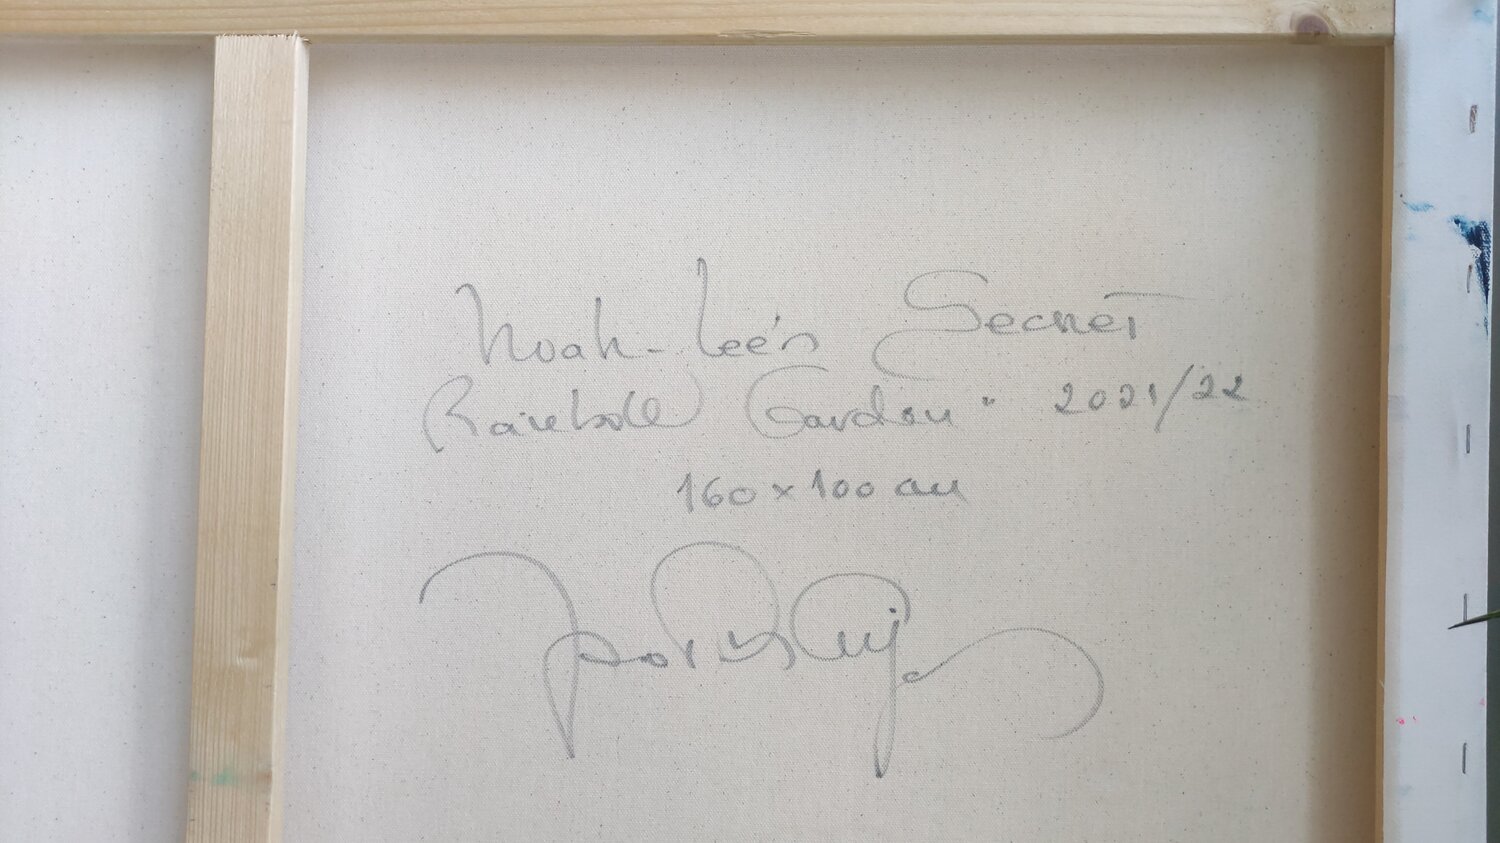 Noah-Lee's Secret
Rainbow Garden" 2021/22
160 x 100 cm